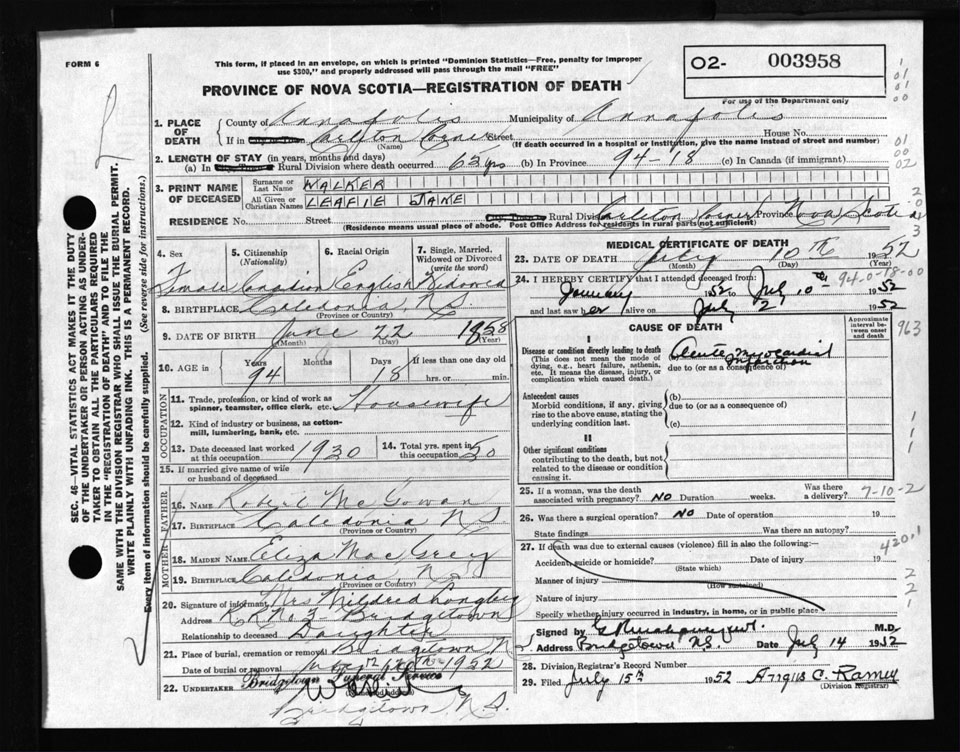 FORM 6
This form, if placed in an envelope, on which is printed "Dominion Statistics—Free, penalty for improper
use $300," and properly addressed will pass through the mail "FREE"
O2- 003958
For use of the Department only
PROVINCE OF NOVA SCOTIA—REGISTRATION OF DEATH
1. PLACE OF DEATH County of Annapolis Municipality of Annapolis
If in Carlton Corner Street House No.
(Name) (If death occurred in a hospital or institution, give the name instead of street and number)
2. LENGTH OF STAY (in years, months and days)
(a) In Rural Division where death occurred 63 yrs (b) In Province 94-18 (c) In Canada (if immigrant)
3. PRINT NAME OF DECEASED Surname or Last Name WALKER
All Given or Christian Names LEAFIE JANE
RESIDENCE No. Street Rural Division Carleton Corner Province Nova Scotia
(Residence means usual place of abode. Post Office Address for residents in rural parts not sufficient)
4. Sex 5. Citizenship (Nationality) 6. Racial Origin 7. Single, Married, Widowed or Divorced (write the word)
Female Canadian English Widowed
8. BIRTHPLACE Caledonia, N.S.
(Province or Country)
9. DATE OF BIRTH June 22 1858
(Month) (Day) (Year)
10. AGE in Years 94 Months Days 18 If less than one day old hrs. or min.
OCCUPATION
11. Trade, profession, or kind of work as spinner, teamster, office clerk, etc. Housewife
12. Kind of industry or business, as cotton-mill, lumbering, bank, etc.
13. Date deceased last worked at this occupation 1930 14. Total yrs. spent in this occupation 50
15. If married give name of wife or husband of deceased
FATHER
16. NAME Robert McGowan
17. BIRTHPLACE Caledonia N S
(Province or Country)
MOTHER
18. MAIDEN NAME Eliza Mac Grey
19. BIRTHPLACE Caledonia N.S.
(Province or Country)
20. Signature of informant Mrs Mildred Longley
Address R R No 3 Bridgetown
Relationship to deceased Daughter
21. Place of burial, cremation or removal Bridgetown N
Date of burial or removal 1952
22. UNDERTAKER Bridgetown Funeral Service
Bridgetown N.S.
MEDICAL CERTIFICATE OF DEATH
23. DATE OF DEATH July 10th 1952
(Month) (Day) (Year)
24. I HEREBY CERTIFY that I attended deceased from: 94-0-18-00
January 1952 to July 10th 1952
and last saw her alive on July 2 1952
CAUSE OF DEATH
Approximate interval between onset and death
963
I
Disease or condition directly leading to death
(This does not mean the mode of dying, e.g., heart failure, asthenia, etc. It means the disease, injury, or complication which caused death.)
Acute Myocardial Infarction
due to (or as a consequence of)
Antecedent causes
Morbid conditions, if any, giving rise to the above cause, stating the underlying condition last.
(b)
due to (or as a consequence of)
(c)
II
Other significant conditions
contributing to the death, but not related to the disease or condition causing it.
25. If a woman, was the death associated with pregnancy? NO Duration weeks. Was there a delivery? 7-10-2
26. Was there a surgical operation? NO Date of operation 19
State findings Was there an autopsy?
27. If death was due to external causes (violence) fill in also the following:— 4201
Accident, suicide or homicide? Date of injury 19
(State which)
Manner of injury
(How sustained)
Nature of injury
Specify whether injury occurred in industry, in home, or in public place
Signed by M.D.
Address Bridgetown N.S. Date July 14 1952
28. Division Registrar's Record Number
29. Filed July 15th 1952 Angus C. Ramey
(Division Registrar)
SEC. 46—VITAL STATISTICS ACT MAKES IT THE DUTY
OF THE UNDERTAKER OR PERSON ACTING AS UNDERTAKER
TO OBTAIN ALL THE PARTICULARS REQUIRED
IN THE "REGISTRATION OF DEATH" AND TO FILE THE
SAME WITH THE DIVISION REGISTRAR WHO SHALL ISSUE THE BURIAL PERMIT.
WRITE PLAINLY WITH UNFADING INK. THIS IS A PERMANENT RECORD.
Every item of information should be carefully supplied. (See reverse side for instructions.)